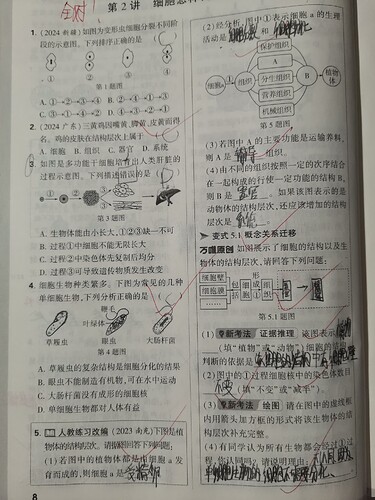 第2讲 细胞怎样
1. (2024新疆)如图为变形虫细胞分裂不同阶
段的示意图。下列排序正确的是
① ② ③ ④
第1题图
A. ①→②→③→④
C. ①→④→②→③
2. (2024广东)三黄鸡因嘴黄、脚黄、皮黄而得
名。鸡的皮肤在结构层次上属于
A. 细胞 B. 组织 C. 器官 D. 系统
3.
如图是多功能干细胞培育出人类肝脏的
过程示意图。下列描述错误的是
第3题图
A. 生物体能由小长大,①②③缺一不可
B. 过程①中细胞不能无限长大
C. 过程②中染色体先复制后均分
D. 过程③可导致遗传物质发生改变
4. 细胞生物种类繁多。下图为常见的几种
单细胞生物,下列分析正确的是
鞭毛
叶绿体
草履虫 眼虫 大肠杆菌
第4题图
A. 草履虫的复杂结构是细胞分化的结果
B. 眼虫不能制造有机物,可在水中运动
C. 大肠杆菌没有成形的细胞核
D. 单细胞生物都对人体有益
5. 人教练习改编 (2023南充)下图是植
物体的结构层次。请据图答下列问题:
(1)若图中的植物体都是由细胞a发
育而成的,则细胞a是受精卵
8
(2)经分析,图中①表示细胞a的生理
活动是细胞分裂和细胞分化
保护组织
A
细胞a ① 分生组织 B 植物体
营养组织
机械组织
第5题图
(3)若图中A的主要功能是运输养料,
则A是输导组织。
(4)由不同的组织按照一定的次序结合
在一起构成的行使一定功能的结构B,
则B是器官。如果该图表示的是
动物体的结构层次,还应该增加的结构
层次是系统。
变式5.1. 概念关系迁移
万唯原创 如图展示了细胞的结构以及生
物体的结构层次,请回答下列问题:
细胞壁
细胞膜
包括 细胞 形成 ① 组织
第5.1题图
(1) 新考法 证据推理 该图表示
(填“植物”或“动物”)细胞的结构
判断的依据是
(2)图中的①过程细胞核中染色体数目
不变(填“不变”或“减半”)。
(3) 新考法 绘图 请在图中的虚线框
内用箭头加方框的形式将该生物体的结
构层次补充完整。
(4)有同学认为所有生物都会经过①过
程,你认同吗?请说明理由:不同意,